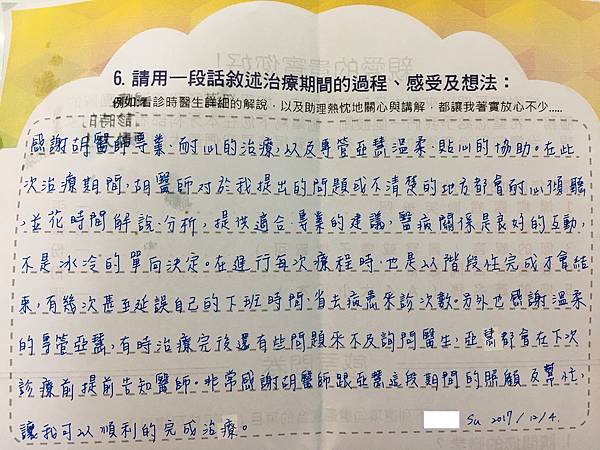 6. 請用一段話敘述治療期間的過程、感受及想法：
例如:看診時醫生詳細的解說，以及助理熱忱地關心與講解，都讓我著實放心不少.....
感謝胡醫師專業、耐心的治療,以及專管亞慧溫柔、貼心的協助。在此
次治療期間,胡醫師對於我提出的問題或不清楚的地方都會耐心傾聽
,並花時間解說、分析,提供適合、專業的建議,醫病關係是良好的互動,
不是冰冷的單向決定。在進行每次療程時,也是以階段性完成才會結
束,有幾次甚至延誤自己的下班時間,省去病患來診次數。另外也感謝溫柔
的專管亞慧,有時治療完後還有些問題來不及詢問醫生,亞慧都會在下次
診療前提前告知醫師。非常感謝胡醫師跟亞慧這段期間的照顧及幫忙,
讓我可以順利的完成治療。
Su 2017/12/4.